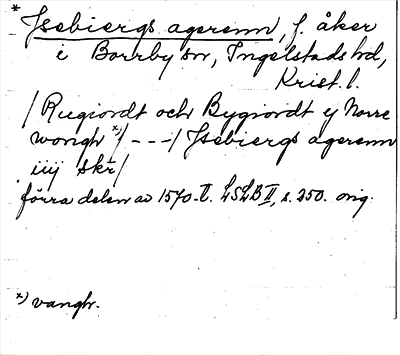 * Jsebiergs agerenn, f. åker
i Borrby sn, Ingelstads hd,
Krist. l.
/Rugiordt och Bygiordt ij Norre
wongh x)/ - - - / Jsebiergs agerenn
iiij skr/
förra delen av 1570-t. LSLB II, s. 250. orig.
x) vangh.